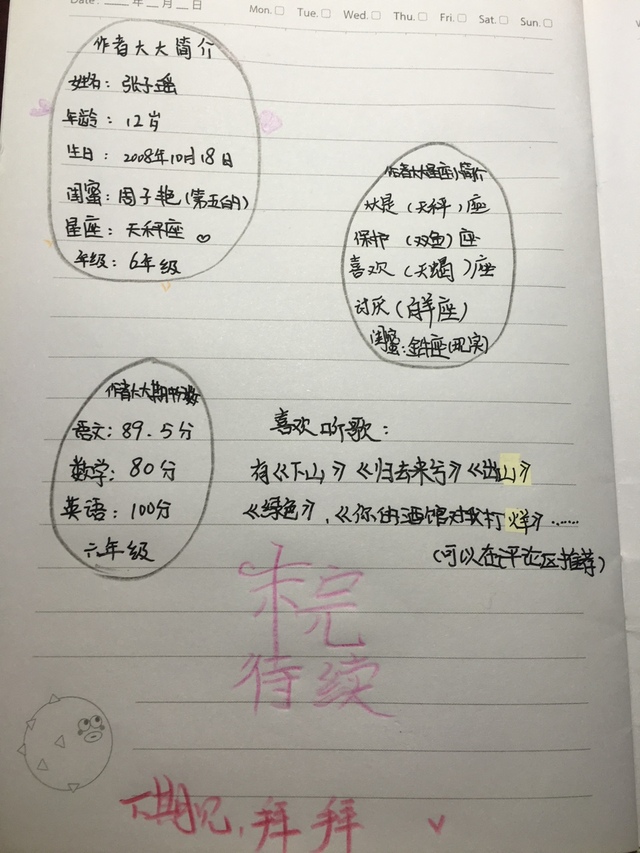 Date: 年 月 日 Mon. Tue. Wed. Thu. Fri. Sat. Sun.
作者大大简介
姓名: 张子瑶
年龄: 12岁
生日: 2008年10月18日
闺蜜: 周子艳(第五白月)
星座: 天秤座
年级: 6年级
作者大大星座小简介
以是(天秤)座
保护(双鱼)座
喜欢(天蝎)座
讨厌(白羊座)
闺蜜:金牛座(现实)
作者大大期中分数
语文: 89.5分
数学: 80分
英语: 100分
六年级
喜欢听歌:
有《下山》《归去来兮》《出山》
《绿色》,《你的酒馆对我打烊》……
(可以在评论区推荐)
未完
待续
下期见,拜拜